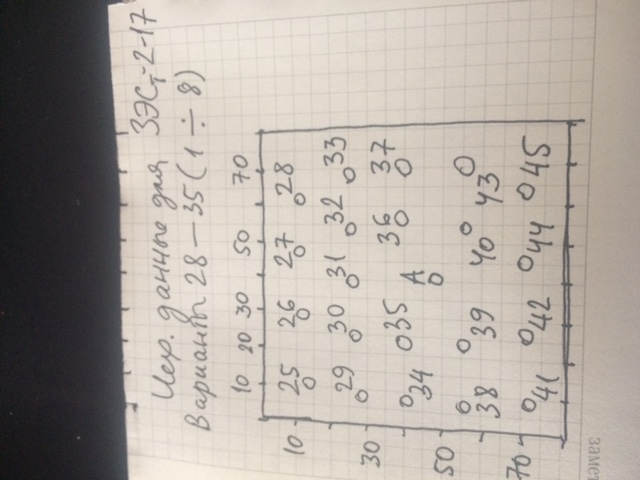 Исх. данные для ЗЭСт-2-17
Варианты 28 – 35 (1 ÷ 8)
10 20 30 50 70
10 25 26 27 28
29 30 31 32 33
30 34 35 А 36 37
50 38 39 40 43
70 41 42 44 45
замет